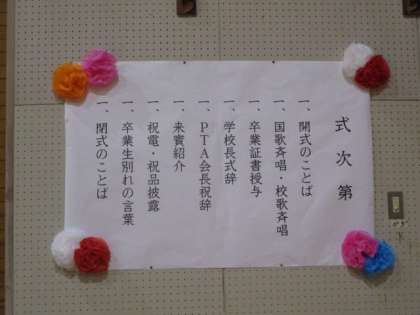 式次第
一、開式のことば
一、国歌斉唱・校歌斉唱
一、卒業証書授与
一、学校長式辞
一、PTA会長祝辞
一、来賓紹介
一、祝電・祝品披露
一、卒業生別れの言葉
一、閉式のことば